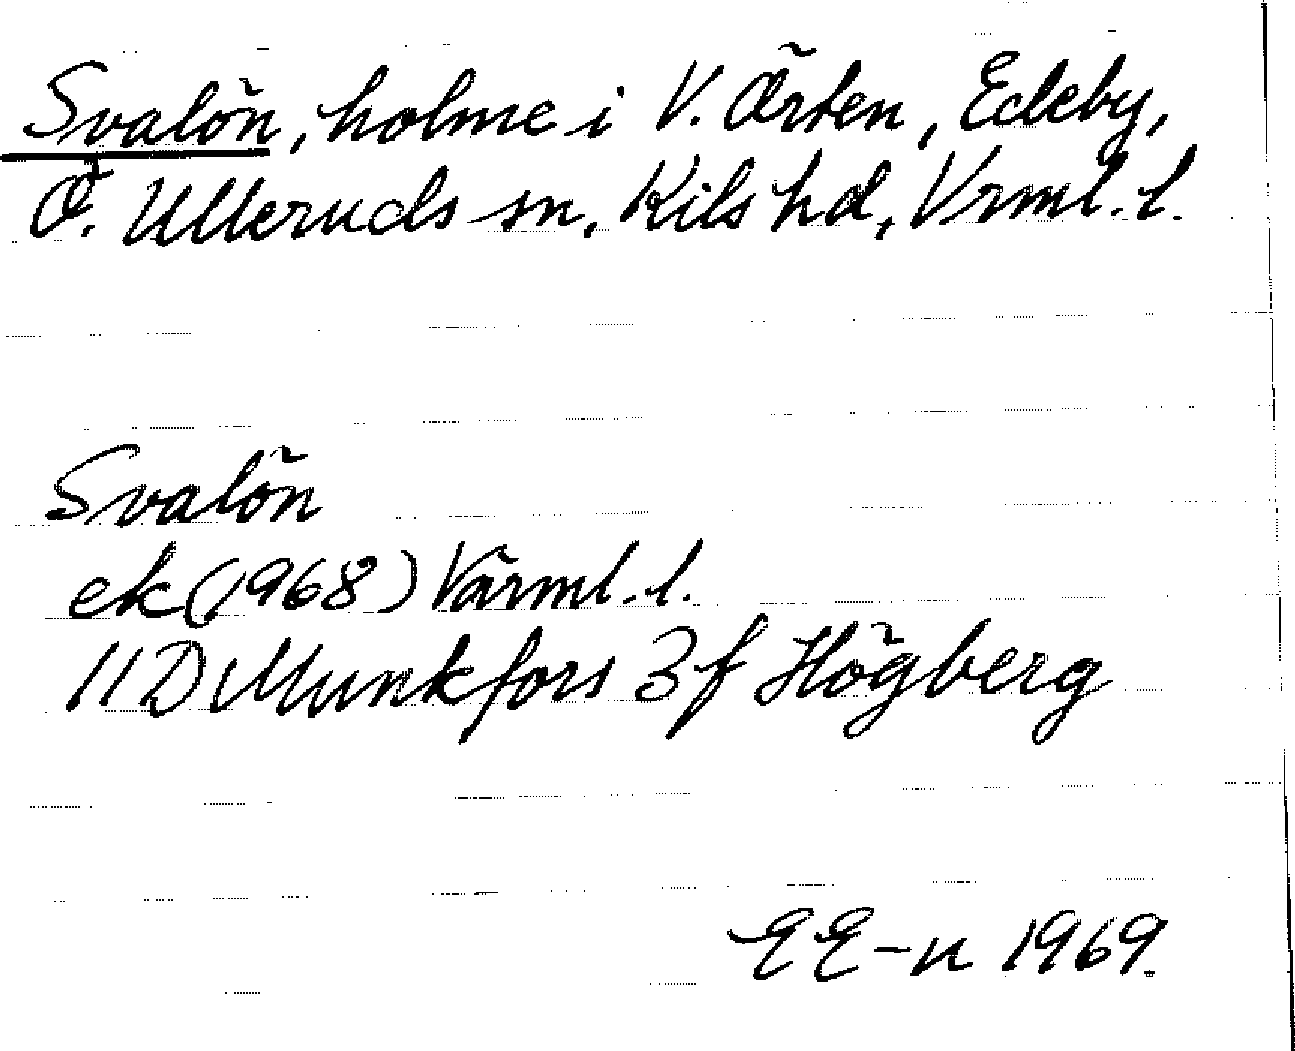 Svalön, holme i V. Örten, Edeby,
Ö. Ulleruds sn, Kils hd, Vrml. l.
Svalön
ek (1968) Värml. l.
11D Munkfors 3f Högberg
EE-n 1969.